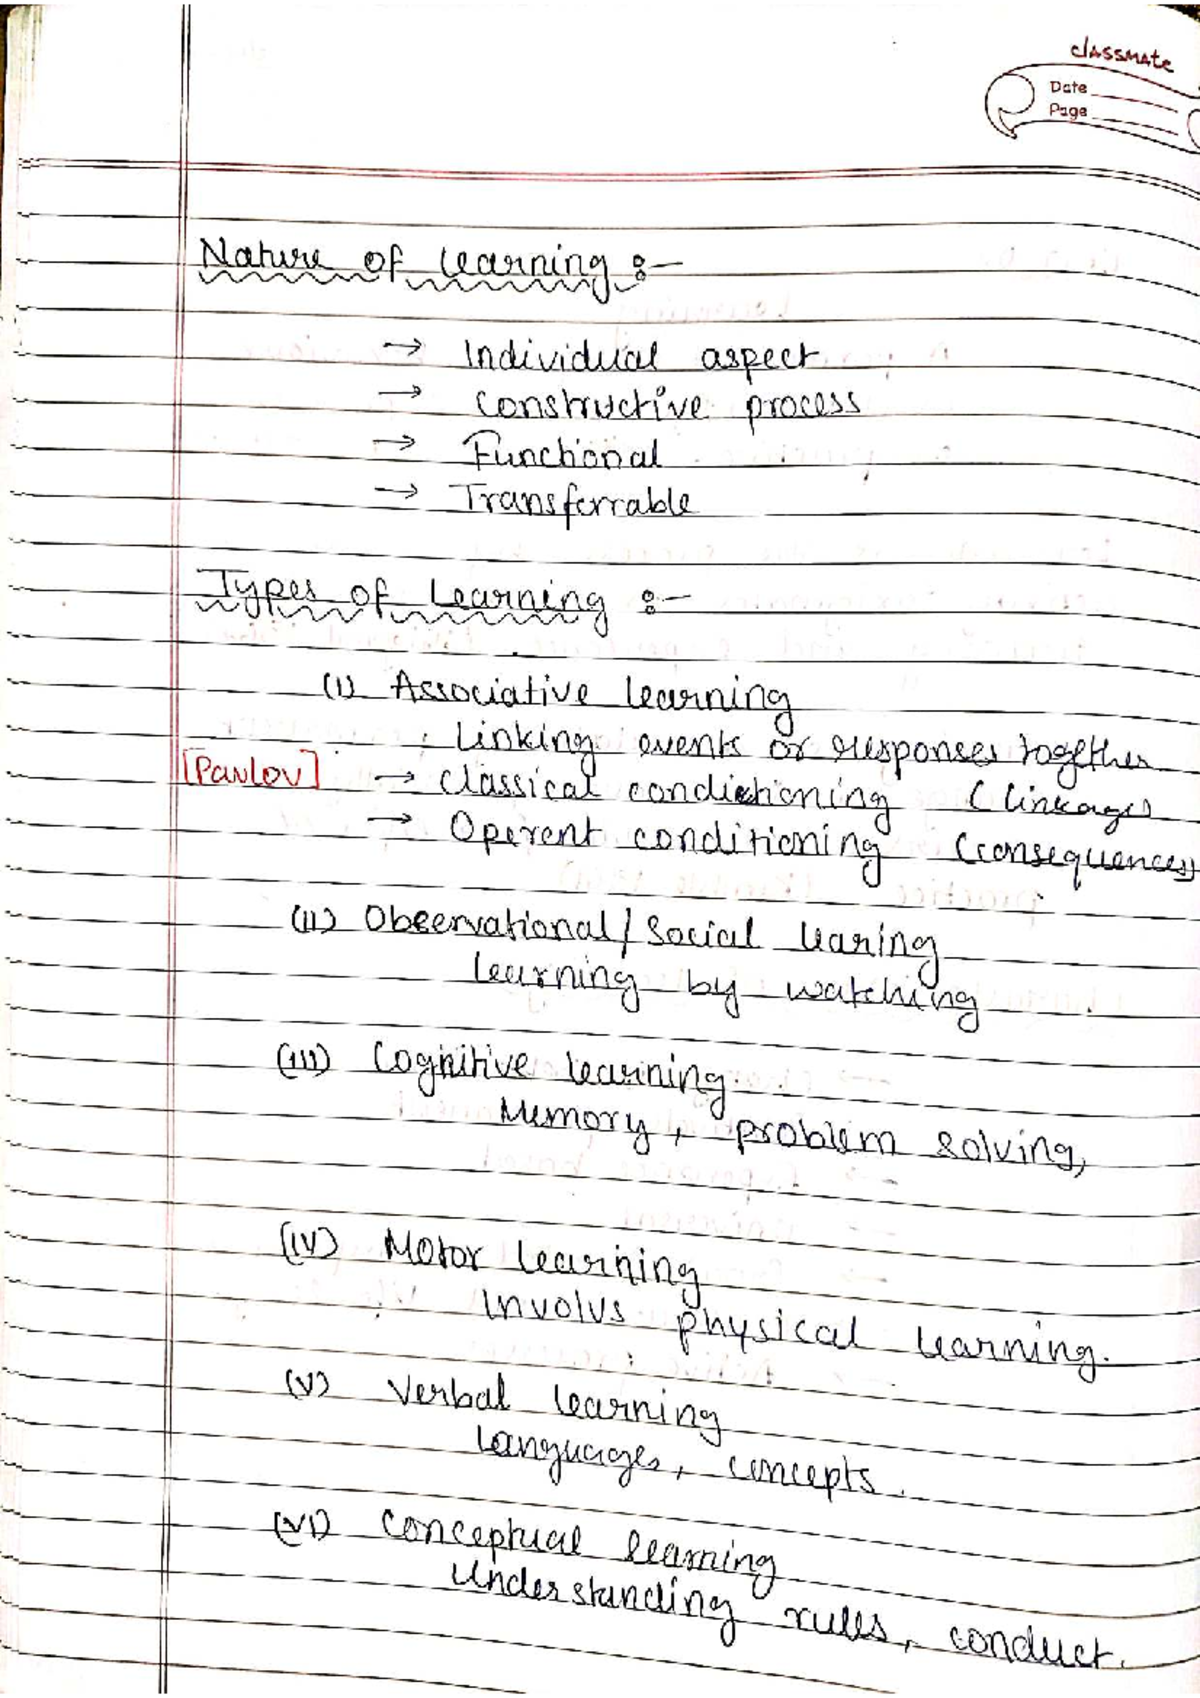 classmate
Date
Page
Nature of learning :-
→ Individual aspect
→ Constructive process
→ Functional
→ Transferrable
Types of Learning :-
(I) Associative learning
Linking events or responses together
[Pavlov] → Classical conditioning (linkage)
→ Operent conditioning (consequences)
(II) Observational/Social learing
learning by watching
(III) Cognitive learning
Memory, problem solving,
(IV) Motor learning
Involvs physical learning.
(V) Verbal learning
Languages, concepts.
(VI) Conceptual learning
Understanding rules, conduct.